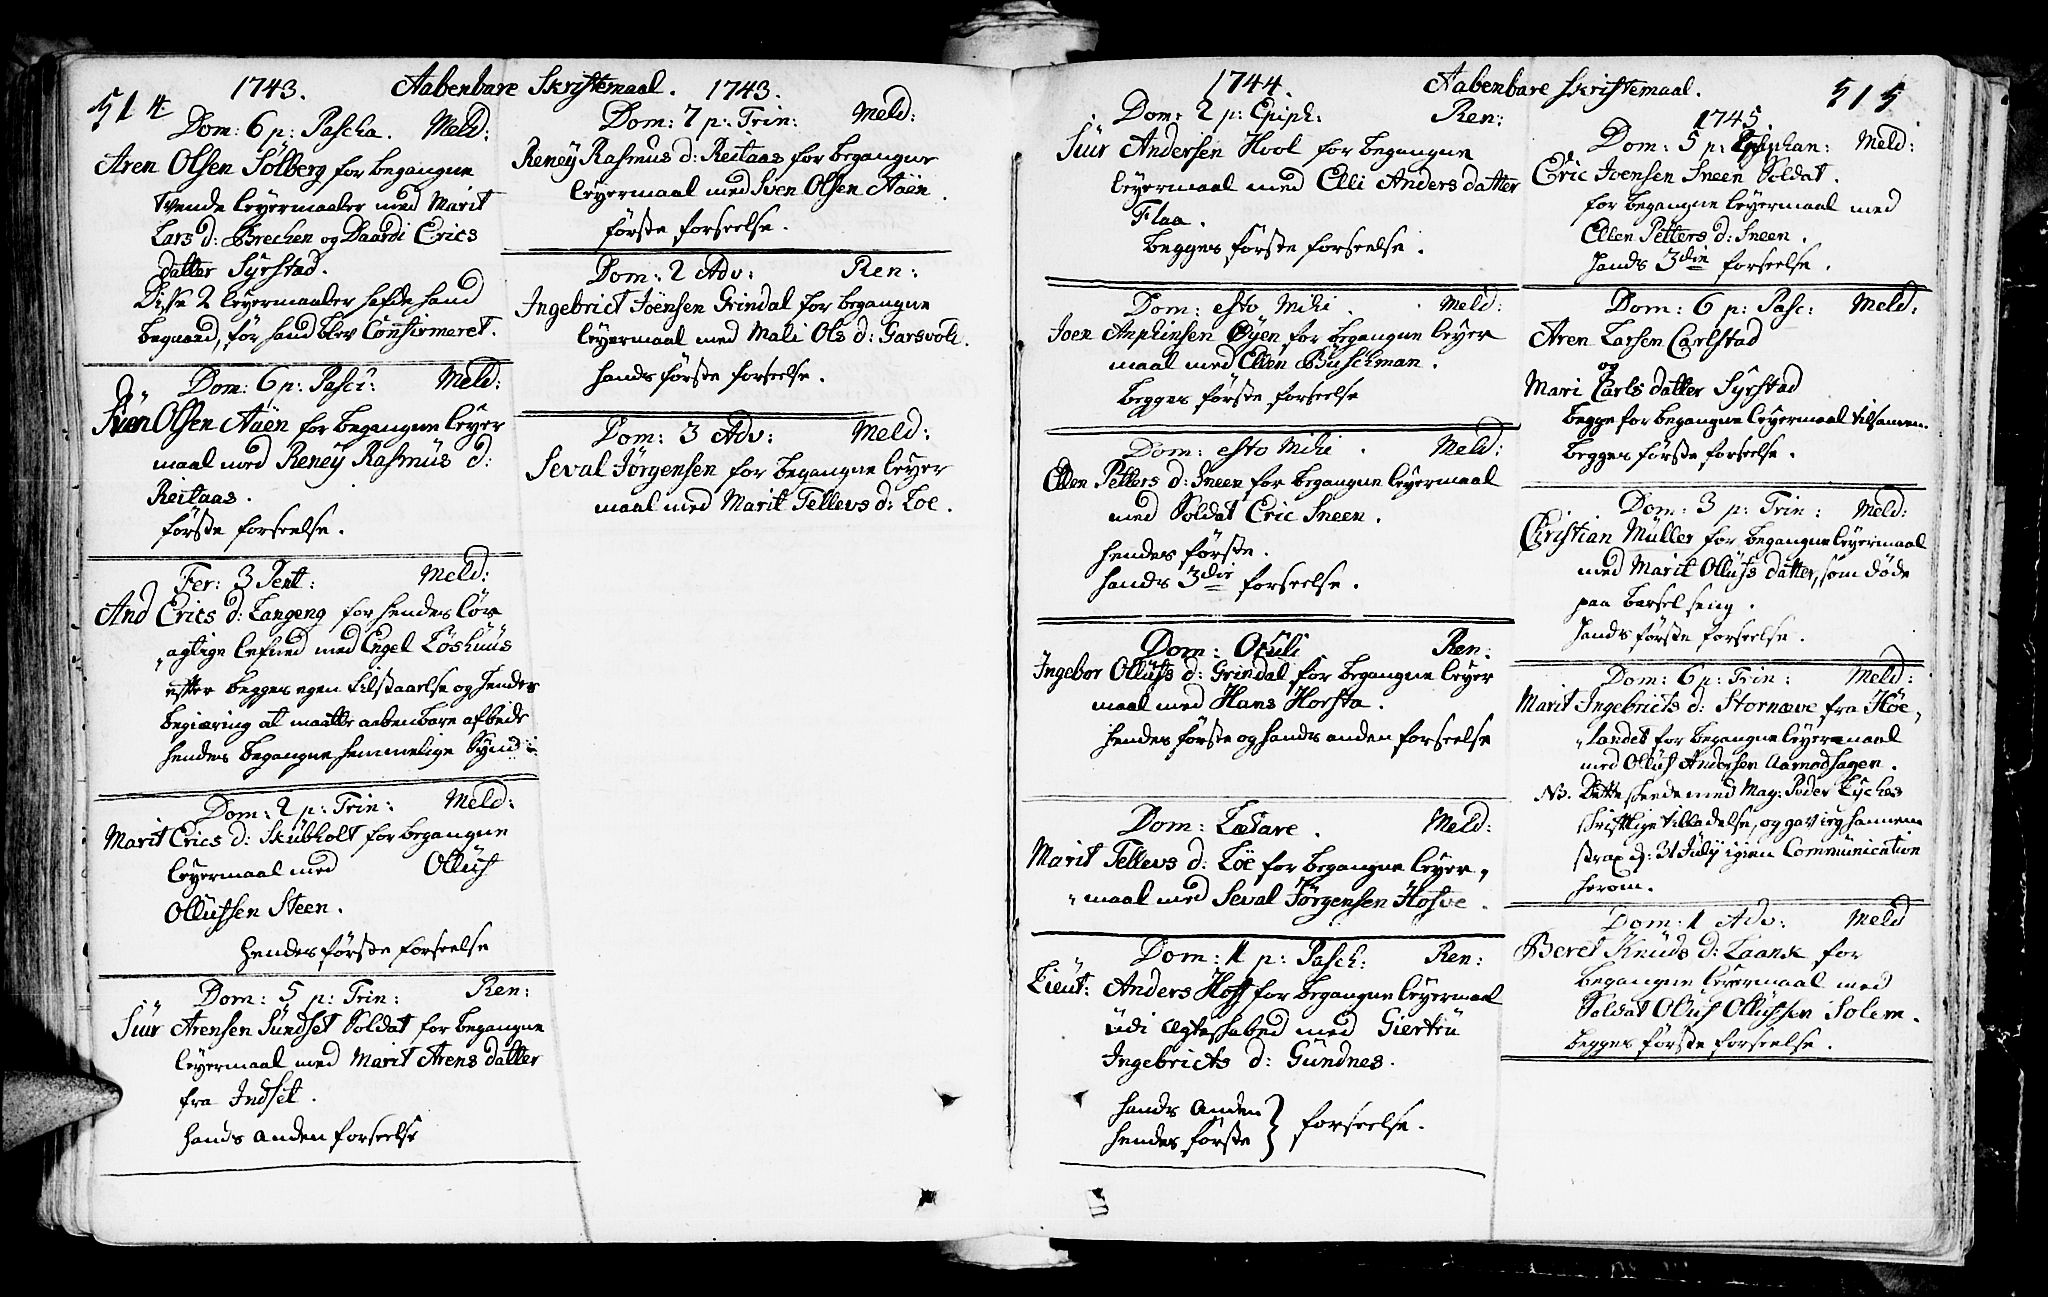 514
1743. Aabenbare Skriftemaal. 1743.
Dom: 6 p: Pascha. Meld:
Aren Olsen Sölberg for begangne
tvende leyermaaler med Marit
Lars d: Brechen og Daardi Erics
datter Syrstad.
Disse 2 leyermaaler hafde hand
begaaed, för hand blev Confirmeret.
Dom: 6 p: Pasc: Meld:
Sven Olsen Aaen for begangne leyer
maal med Reney Rasmus d:
Reitaas.
förste forseelse.
Fer: 3 Pent: Meld:
And Erics d: Langeng for hendes lös
agtige lefned med Engel Löshuus
efter begges egen tilstaaelse og hendes
begiæring at maatte aabenbare afbede
hendes begangne hemmelige Synd
Dom: 2 p: Trin: Meld:
Marit Erics d: Skubholt for begangne
leyermaal med Olluf
Ollufsen Steen.
hendes förste forseelse
Dom: 5 p: Trin: Ren:
Siur Arensen Sundset Soldat for begangne
leyermaal med Marit Arens datter
fra Indset.
hands anden forseelse
Dom: 7 p: Trin: Meld:
Reney Rasmus d: Reitaas for begangne
leyermaal med Sven Olsen Aaen.
förste forseelse.
Dom: 2 Adv: Ren:
Ingebrict Joensen Grindal for begangne
leyermaal med Mali Ols d: Garsvoll.
hands förste forseelse.
Dom: 3 Adv: Meld:
Seval Jörgensen for begangne leyer
maal med Marit Tellevs d: Loe.
1744. Aabenbare Skriftemaal. 515
Dom: 2 p: Epiph: Ren:
Siur Andersen Hool for begangne
leyermaal med Elli Anders datter
Flaa.
begges förste forseelse.
Dom: esto Mihi. Meld:
Joen Anphinsen Öyen for begangne leyer
maal med Ellen Buschman.
begges förste forseelse
Dom: esto Mihi. Meld:
Ellen Petters d: Sneen for begangne leyermaal
med Soldat Eric Sneen.
hendes förste.
hands 3die forseelse.
Dom: Oculi Ren:
Ingebor Ollufs d: Grindal for begangne leyer
maal med Hans Horsta.
hendes förste og hands anden forseelse
Dom: Lætare. Meld:
Marit Tellevs d: Loe for begangne leyer
maal med Seval Jörgensen Hofve.
Dom: 1 p: Pasch: Ren:
Lieut: Anders Hoff for begangne leyermaal
udi ægteskabed med Giertru
Ingebricts d: Gundnes.
hands anden
hendes förste } forseelse.
1745.
Dom: 5 p: Epiphan: Meld:
Eric Joensen Sneen Soldat.
for begangne leyermaal med
Ellen Petters d: Sneen.
hands 3die forseelse.
Dom: 6 p: Pasc: Meld:
Aren Larsen Carlstad
og
Mari Carls datter Syrstad
begge for begangne leyermaal tilsamen.
begges förste forseelse.
Dom: 3 p: Trin: Meld:
Christian Müller for begangne leyermaal
med Marit Ollufs datter, som döde
paa barsel seng.
hands förste forseelse.
Dom: 6 p: Trin: Meld:
Marit Ingebricts d: Stornæve fra Höe
landet for begangne leyermaal
med Olluf Andersen Aamodshagen.
NB. Dette skeede med Mag: Peder Lyches
skriftlige tilladelse, og gav ieg hannem
strax d: 31 July igien Communication
herom.
Dom: 1 Adv: Meld
Beret Knuds d: Laanke for
begangne leyermaal med
Soldat Oluf Ollufsen Solem.
begges förste forseelse.